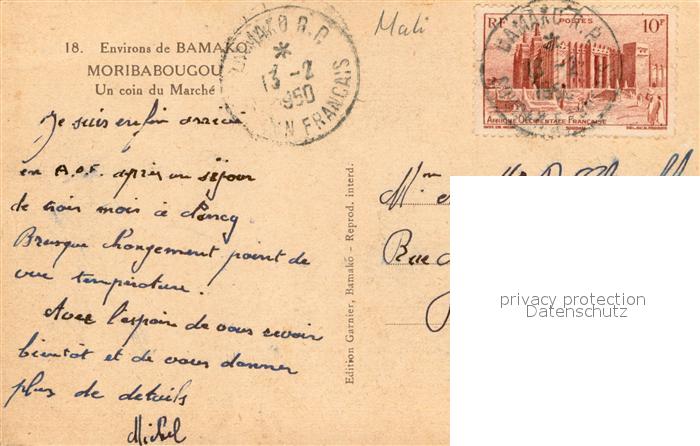 Mali
18. Environs de BAMAKO
MORIBABOUGOU
Un coin du Marché
BAMAKO R.P.
*
13 -2
1950
SOUDAN FRANCAIS
RF POSTES 10F
AFRIQUE OCCIDENTALE FRANÇAISE
BAMAKO R.P.
Je suis enfin arrivé
en A.O.F. après un séjour
de trois mois à
Brusque changement point de
vue température.
Avec l'espoir de vous revoir
bientôt et de vous donner
plus de details
Michel
Edition Garnier, Bamako - Reprod. interd.
Rue
privacy protection
Datenschutz